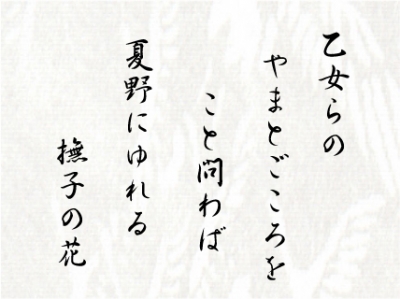 乙女らの
やまとごころを
こと問わば
夏野にゆれる
撫子の花